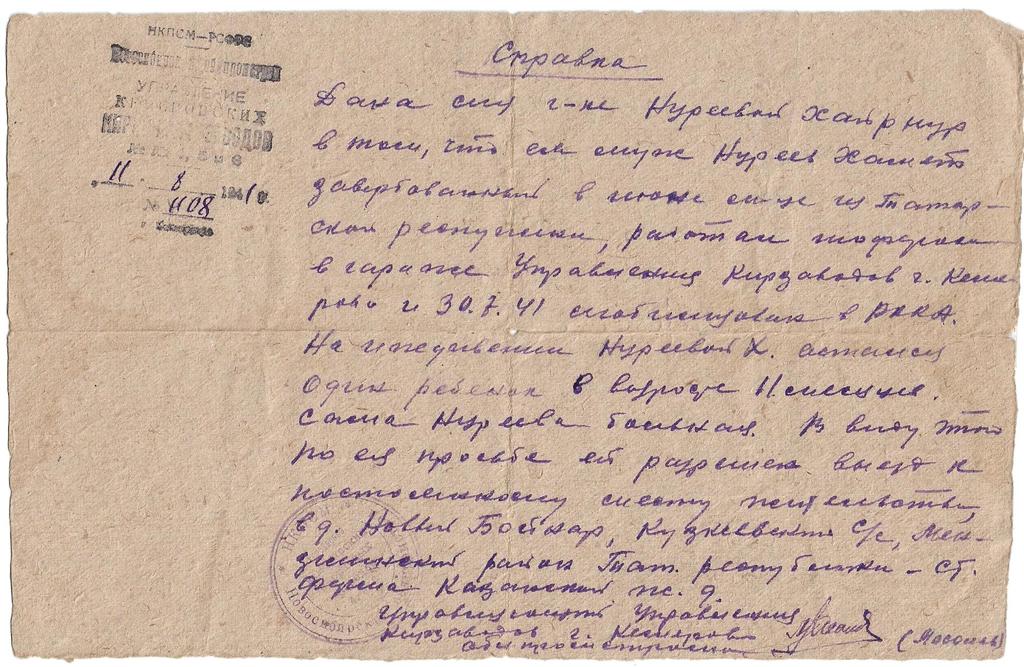 НКПСМ—РСФСР
УПРАВЛЕНИЕ
11 8 1941 г.
№ 1108
Справка
Дана сия г-ке Нуреевой Хайрнур
в том, что ея муж Нуреев Хамет
завербованный в июне м-це из Татар-
ской республики, работал шофером
в гараже Управления Кирзаводов г. Кеме
рово и 30.7.41 смобилизован в РККА.
На иждивении Нуреевой Х. остался
один ребенок в возрасте 11 месяцев.
Сама Нуреева больная. В виду этого
по ея просьбе ей разрешен выезд к
постоянному месту жительства
в д. Новый Байкар, с/с, Мен-
зелинский район Тат. республики – ст.
Казанской ж. д.
Управляющий Управления
Кирзаводов г. Кемерово